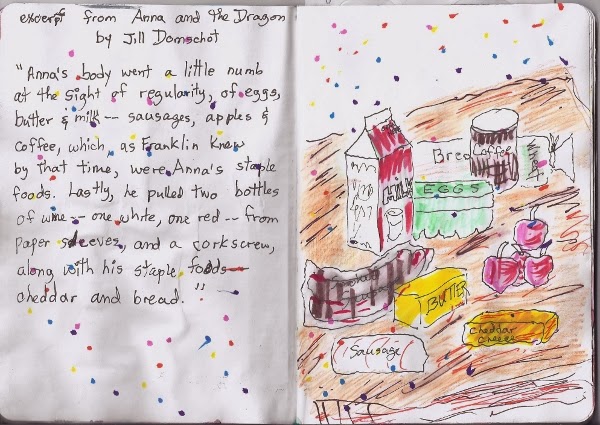 excerpt from Anna and the Dragon
by Jill Domschot
"Anna's body went a little numb
at the sight of regularity, of eggs,
butter & milk -- sausages, apples &
coffee, which, as Franklin knew
by that time, were Anna's staple
foods. Lastly, he pulled two bottles
of wine -- one white, one red -- from
paper sleeves, and a corkscrew,
along with his staple foods--
cheddar and bread."
Bread
Coffee
MILK
EGGS
BUTTER
Sausage
cheddar
cheese